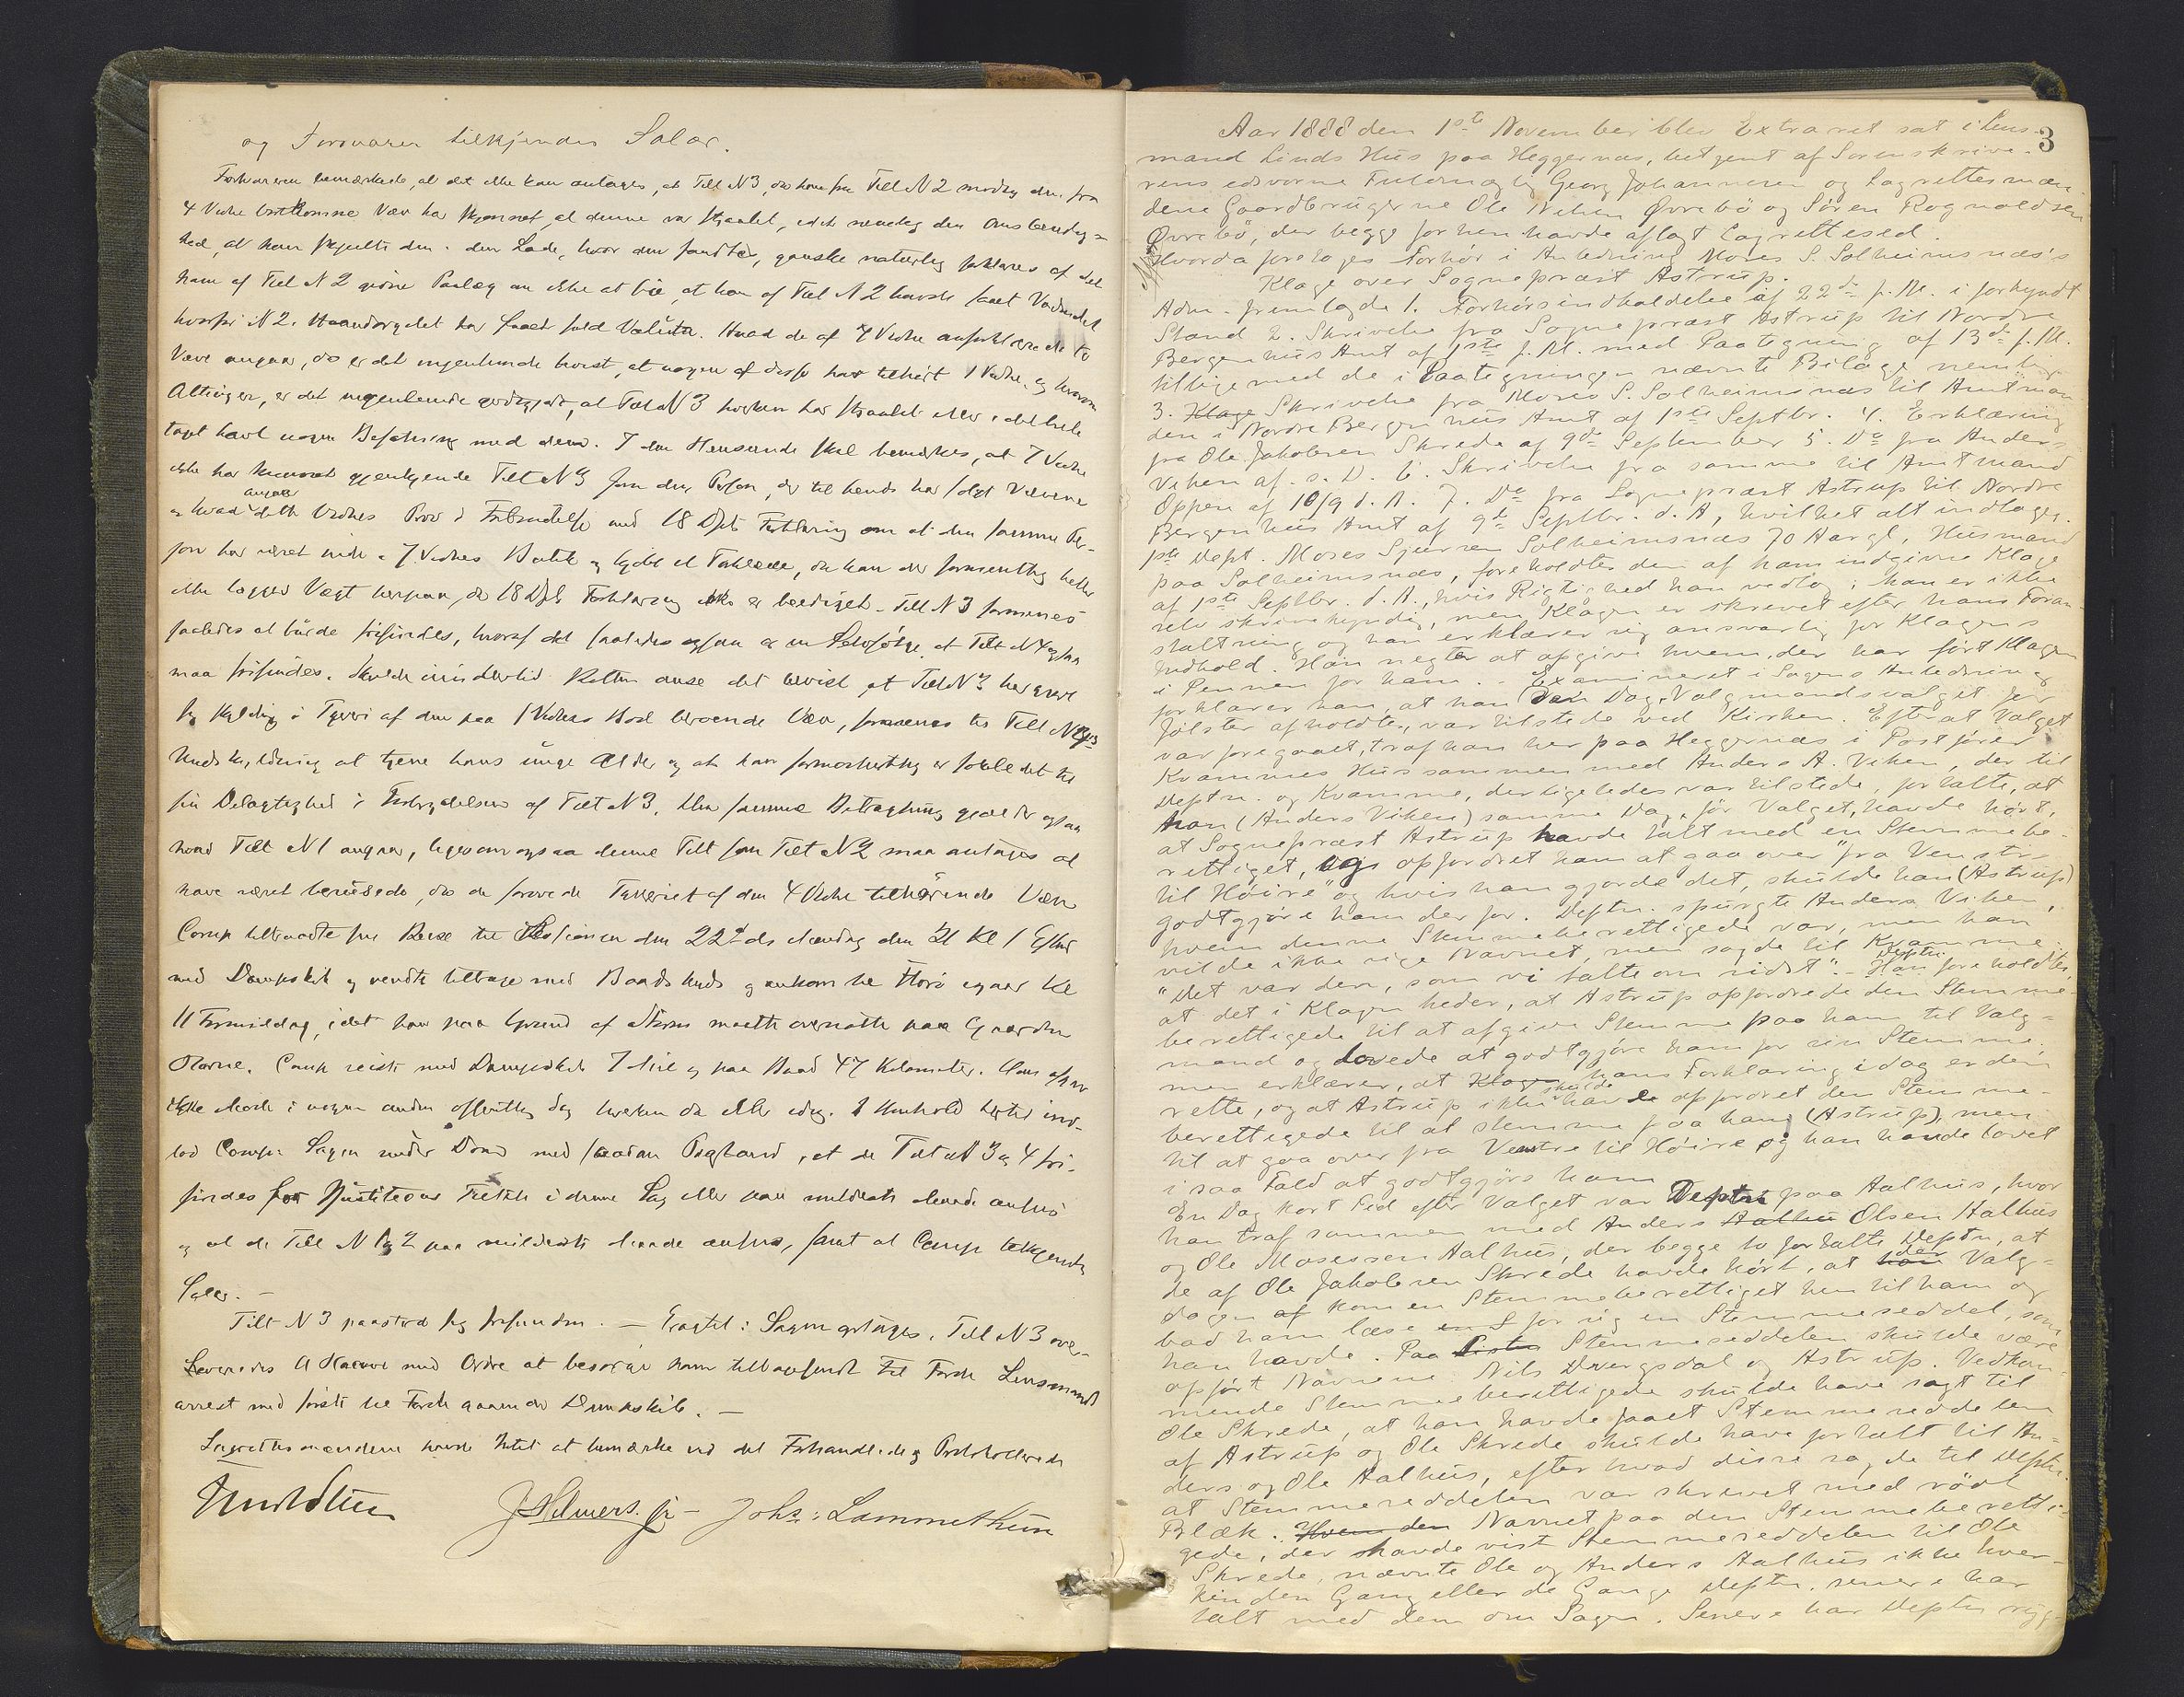 og Forsvaren tilkjendes Salær.
Forsvareren bemærkede, at det ikke kan antages, at Tilt N 3, da han fra Tilt N 2 modtog den fra
4 Vidne bortkomne Væv har skjønnet, at denne var stjaalet, idet nemlig den Omstændig-
hed, at han skjulte den i den Lade, hvor den fandtes, ganske naturlig forklares af det
ham af Tilt N 2 givne Paalæg om ikke at sige, at han af Tilt N 2 havde faaet Vadmelet
hvorfor N 2. Haandværget har faaet fuld Valuta. Hvad de af 4 Vidne anforklarede to
Væve angaar, da er det ingenlunde bevist, at nogen af disse har tilhørt 1 Vidne, og hvorom
Alting er, er det ingenlunde godtgjort, at Tilt N 3 hverken har stjaalet eller i det hele
taget havt nogen Befatning med dem. I den Henseende skal bemærkes, at 7 Vidne
ikke har kunnet gjenkjende Tilt N 3 som den Person, der til hende har solgt Vævene
angaar
og hvad dette Vidnes Prov i Forbindelse med 18 Dpts Forklaring om at den samme Per-
son har været inde i 7 Vidnes Butik og kjøbt et Tørklæde, da kan der formentlig heller
ikke lægges Vægt herpaa, da 18 Dpts Forklaring ikke er beediget. Tilt N 3 formenes
saaledes at burde frifindes, hvoraf det saaledes ogsaa er en Selvfølge at Tilt N 4 ogsaa
maa frifindes. Skulde imidlertid Retten anse det bevist, at Tilt N 3 har gjort
sig skyldig i Tyveri af den paa 1 Vidnes Bod beroende Væv, formenes til Tilt N 3s
Undskyldning at tjene hans unge Alder og at han formodentlig er forledet til
sin Delagtighed i Forbrydelsen af Tilt N 3. Den samme Betragtning gjælder ogsaa
hvad Tilt N 1 angaar, ligesom ogsaa denne Tilt som Tilt N 2 maa antages at
have været berusede, da de forøvede Tyveriet af den 4 Vidne tilhørende Væv
Comp tiltraadte sin Reise til Sessionen den 22de ds Mandag den 21 Kl 1 Efterm
med Dampskib og vendte tilbage med Baadskyds og ankom til Florø igaar Kl
11 Formiddag, idet han paa Grund af Storm maatte overnatte paa Gaarden
Stavne. Comp reiste med Dampskib 7 Mil og paa Baad 47 Kilometer. Han assi-
ikke Møde i nogen anden offentlig Sag hverken da eller idag. I Henhold hertil ind-
lod Comp: Sagen under Dom med saadan Paastand, at de Tilt N 3 og 4 fri-
findes for Justitiens Tiltale i denne Sag eller paa mildeste Maade ansees
og at de Tilt N 1 og 2 paa mildeste Maade ansees, samt at Comp tilkjendes
Salær. —
Tilt N 3 paastod sig frifunden. — Eragtet: Sagen optages. Tilt N 3 over-
leveredes A Haavve med Ordre at besørge ham tilbagesendt til Førde Lensmands
arrest med første til Førde gaaende Dampskib. —
Lagrettesmændene havde Intet at bemærke ved det Forhandlede og Protokollerede
J. Hilmers. jr — Johs: Lammethun
3
Aar 1888 den 1ste November blev Extraret sat i Lens-
mand Linds Hus paa Heggernæs, betjent af Sorenskrive-
rens edsvorne Fuldmægtig Georg Johannesen og Lagrettesmæn-
dene Gaardbrugerne Ole Vehen Øvrebö og Søren Rognaldsen
Øvrebö, der begge forhen havde aflagt Lagrettesed.
Hvorda foretoges Forhör i Anledning Moses S. Solheimsnæs's
Klage over Sogneprest Astrup.
Adm. fremlagde 1. Forhörsindkaldelse af 22de f. M. i forkyndt
Stand 2. Skrivelse fra Sogneprest Astrup til Nordre
Bergenhus Amt af 1ste f. M. med Paategning af 13de f. M.
tilligemed de i Paategningen nævnte Bilage nemlig
3. Klage Skrivelse fra Moses S. Solheimsnæs til Amtman
den i Nordre Bergenhus Amt af 1ste Septbr. 4. Erklæring
fra Ole Jakobsen Skrede af 9de September 5. Do fra Anders
Viken af s. D. 6. Skrivelse fra samme til Amtmand
Oppen af 10/9 d. A. 7. Do fra Sogneprest Astrup til Nordre
Bergenhus Amt af 9de Septbr. d. A, hvilket alt indtages.
1ste Dept. Moses Sjursen Solheimsnæs 70 Aar gl, Husmand
paa Solheimsnæs, foreholdtes den af ham indgivne Klage
af 1ste Septbr. d. A., hvis Rigtighed han vedtog; han er ikke
selv skrivekyndig, men Klagen er skrevet efter hans Foran-
staltning og han erklærer sig ansvarlig for Klagens
Indhold. Han negter at opgive hvem, der har fört Klagen
i Pennen for ham. — Examineret i Sagens Anledning
forklarer han, at han den Dag, Valgmandsvalget for
Jölster afholdtes, var tilstede ved Kirken. Efterat Valget
var foregaaet, traf han her paa Heggernæs i Postförer
Kvammes Hus sammen med Anders A. Viken, der til
Deptn. og Kvamme, der ligeledes var tilstede, fortalte, at
han (Anders Viken) samme Dag, för Valget, havde hört,
at Sogneprest Astrup havde talt med en Stemmebe-
rettiget, og opfordret ham at gaa over "fra Venstre
til Höire" og hvis han gjorde det, skulde han (Astrup)
godtgjöre ham derfor. Deptn. spurgte Anders Viken,
hvem denne Stemmeberettigede var, men han
vilde ikke sige Navnet, men sagde til Kvamme
Deptn.
"det var den, som vi talte om sidst". — Han foreholdtes,
at det i Klagen heder, at Astrup opfordrede den Stemme-
berettigede til at afgive Stemme paa ham til Valg-
mand og lovede at godtgjöre ham for sin Stemme,
men erklærer, at Klagen hans Forklaring idag er den
skulde
rette, og at Astrup ikke have opfordret den Stemme-
berettigede til at stemme paa ham (Astrup), men
til at gaa over fra Venstre til Höire og han havde lovet
i saa Fald at godtgjöre ham
En Dag kort Tid efter Valget var Deptn paa Aalhus, hvor
han traf sammen med Anders Aalhu Olsen Aalhus
og Ole Mosessen Aalhus, der begge to fortalte Deptn, at
der
de af Ole Jakobsen Skrede havde hört, at han Valg-
dagen af kom en Stemmeberettiget hen til ham og
bad ham læse en S for sig en Stemmeseddel, som
han havde. Paa Listen Stemmeseddelen skulde være
opfört Navnene Nils Dvergsdal og Astrup. Vedkom-
mende Stemmeberettigede skulde have sagt til
Ole Skrede, at han havde faaet Stemmeseddelen
af Astrup og Ole Skrede skulde have fortalt til An-
ders og Ole Aalhus, efter hvad disse sagde til Deptn.
at Stemmeseddelen var skrevet med rödt
Blæk. Hvem den Navnet paa den Stemmeberetti-
gede, der havde vist Stemmeseddelen til Ole
Skrede, nævnte Ole og Anders Aalhus ikke hver-
ken den Gang eller de Gange Deptn. senere har
talt med dem om Sagen. Senere har Deptn ryg-